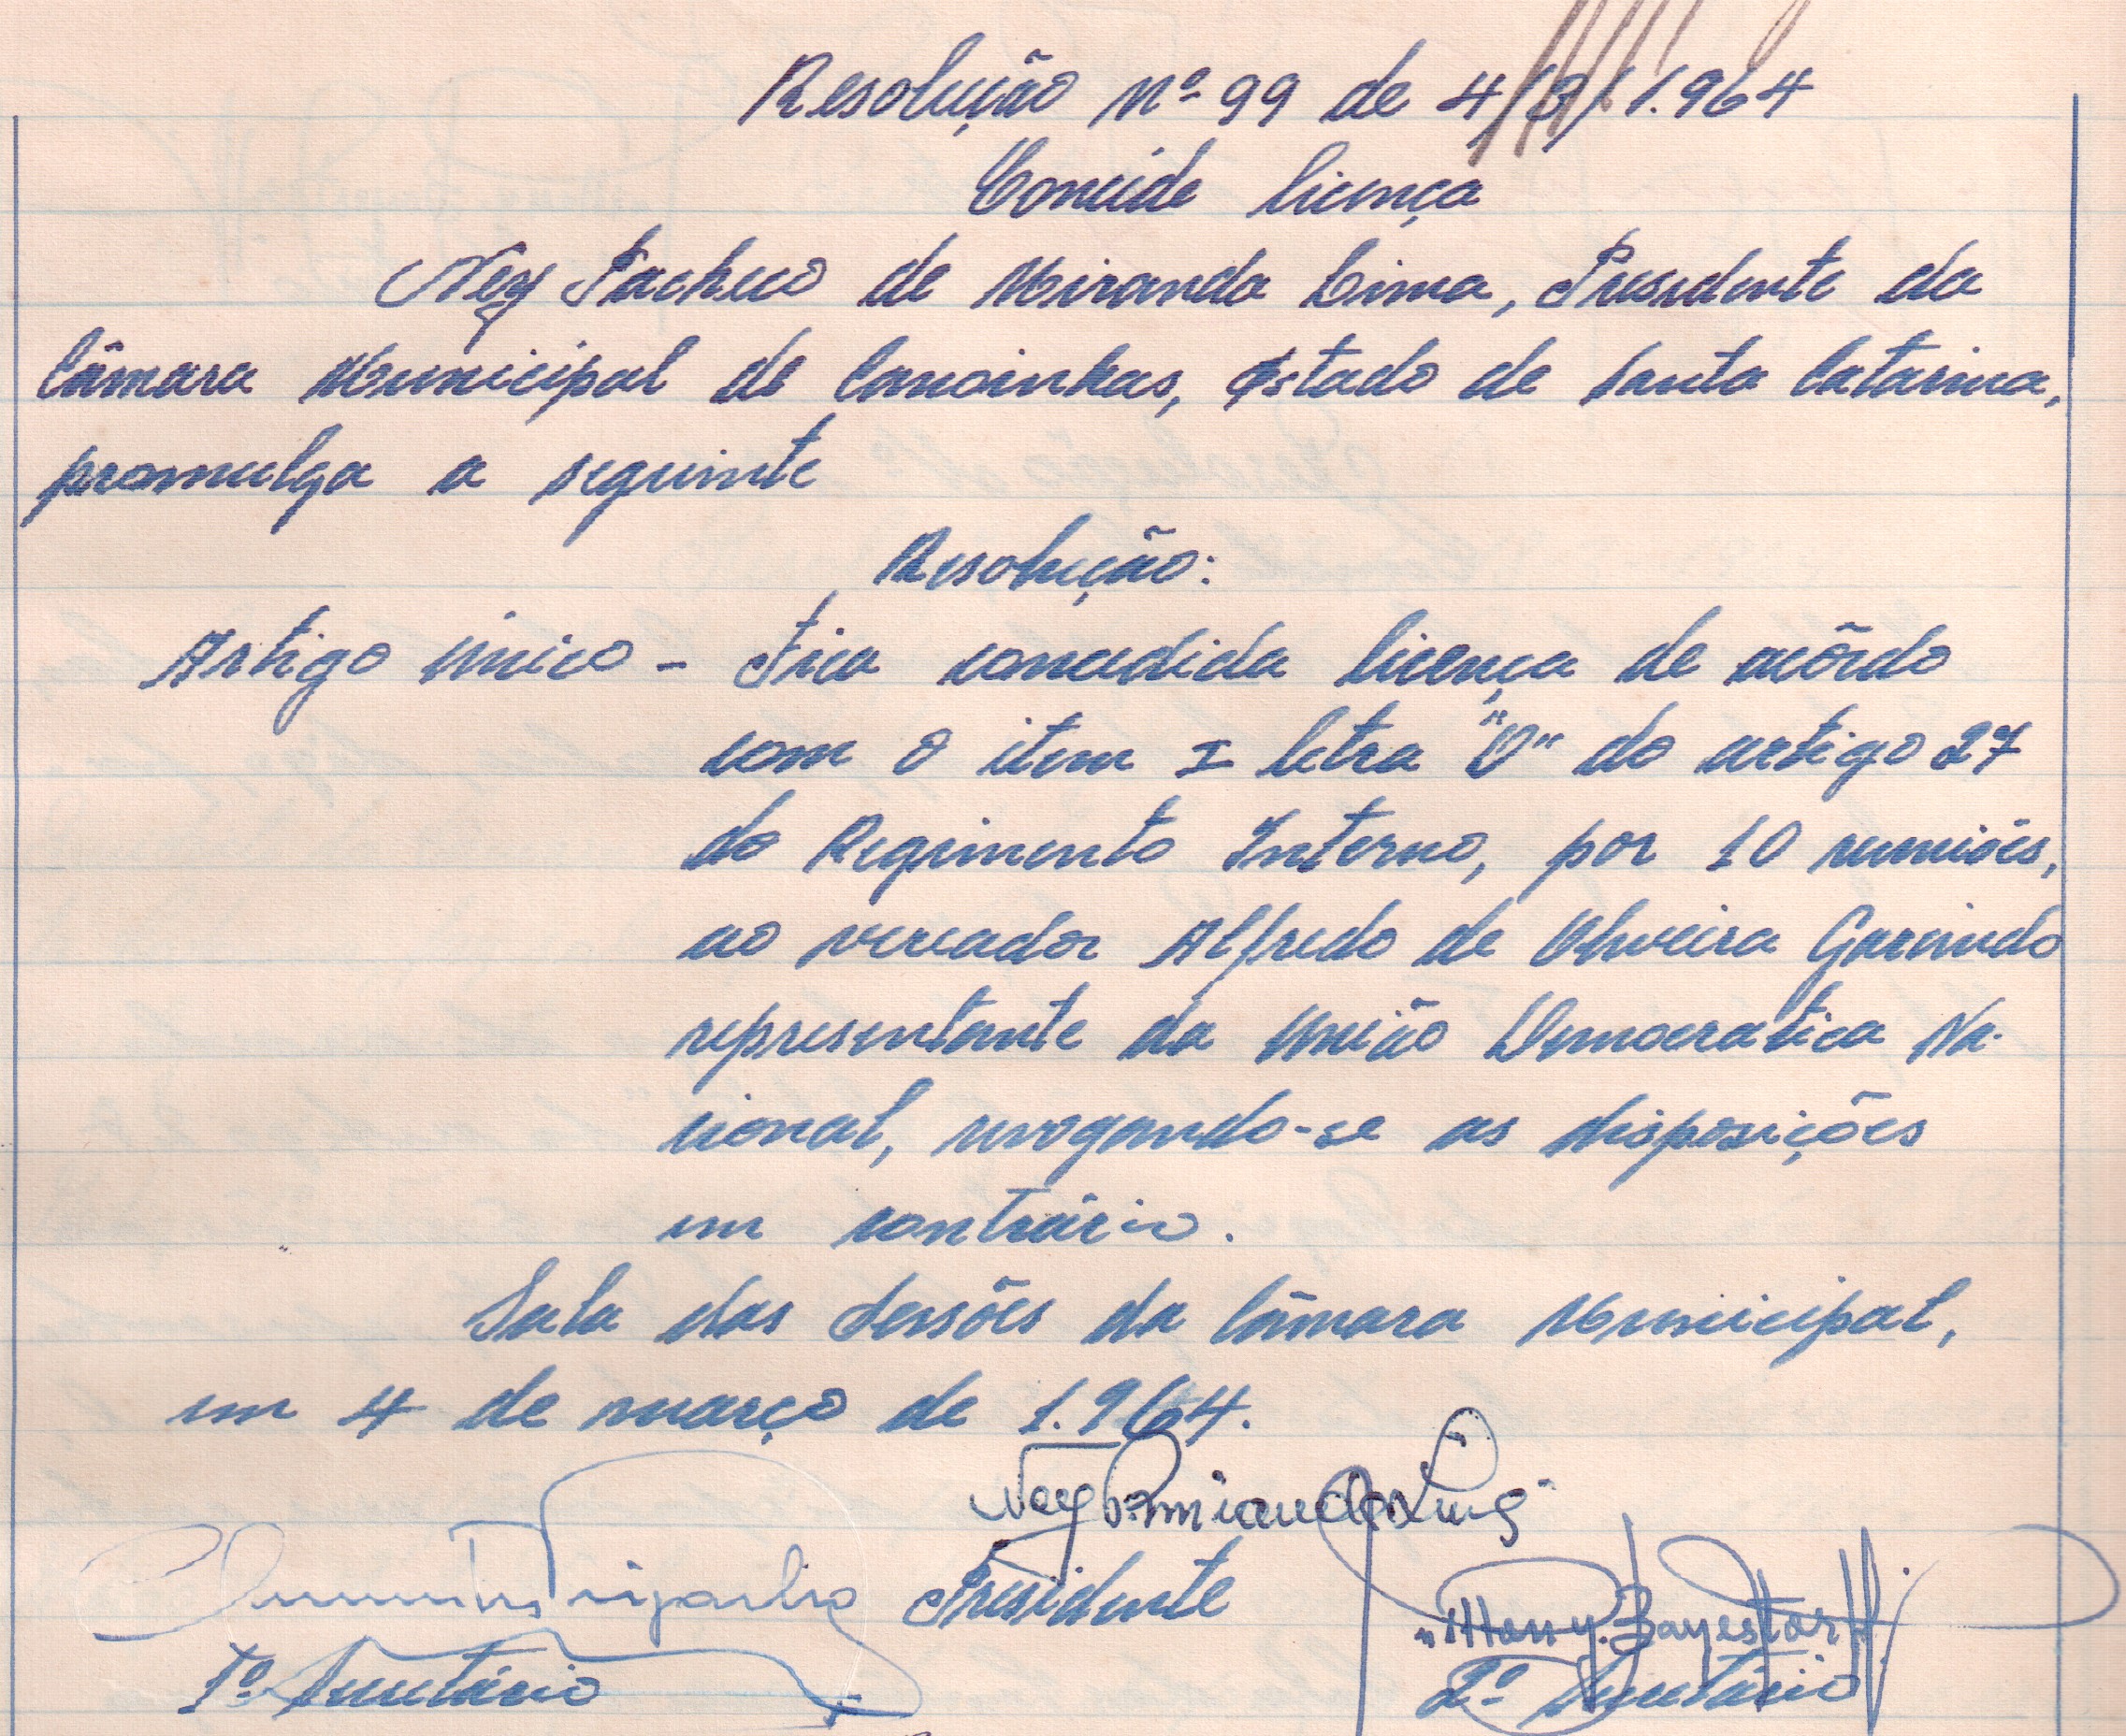 Resolução nº 99 de 4/3/1.964
Concede licença
Ney Pacheco de Miranda Lima, Presidente da
Câmara Municipal de Canoinhas, Estado de Santa Catarina,
promulga a seguinte
Resolução:
Artigo único - Fica concedida licença de acôrdo
com o item I letra "O" do artigo 27
do Regimento Interno, por 10 reuniões,
ao vereador Alfredo de Oliveira Garcindo
representante da União Democratica Na-
cional, revogando-se as disposições
em contrário.
Sala das Sessões da Câmara Municipal,
em 4 de março de 1.964.
Ney P. Miranda Lima
Presidente
1º Secretário
2º Secretário